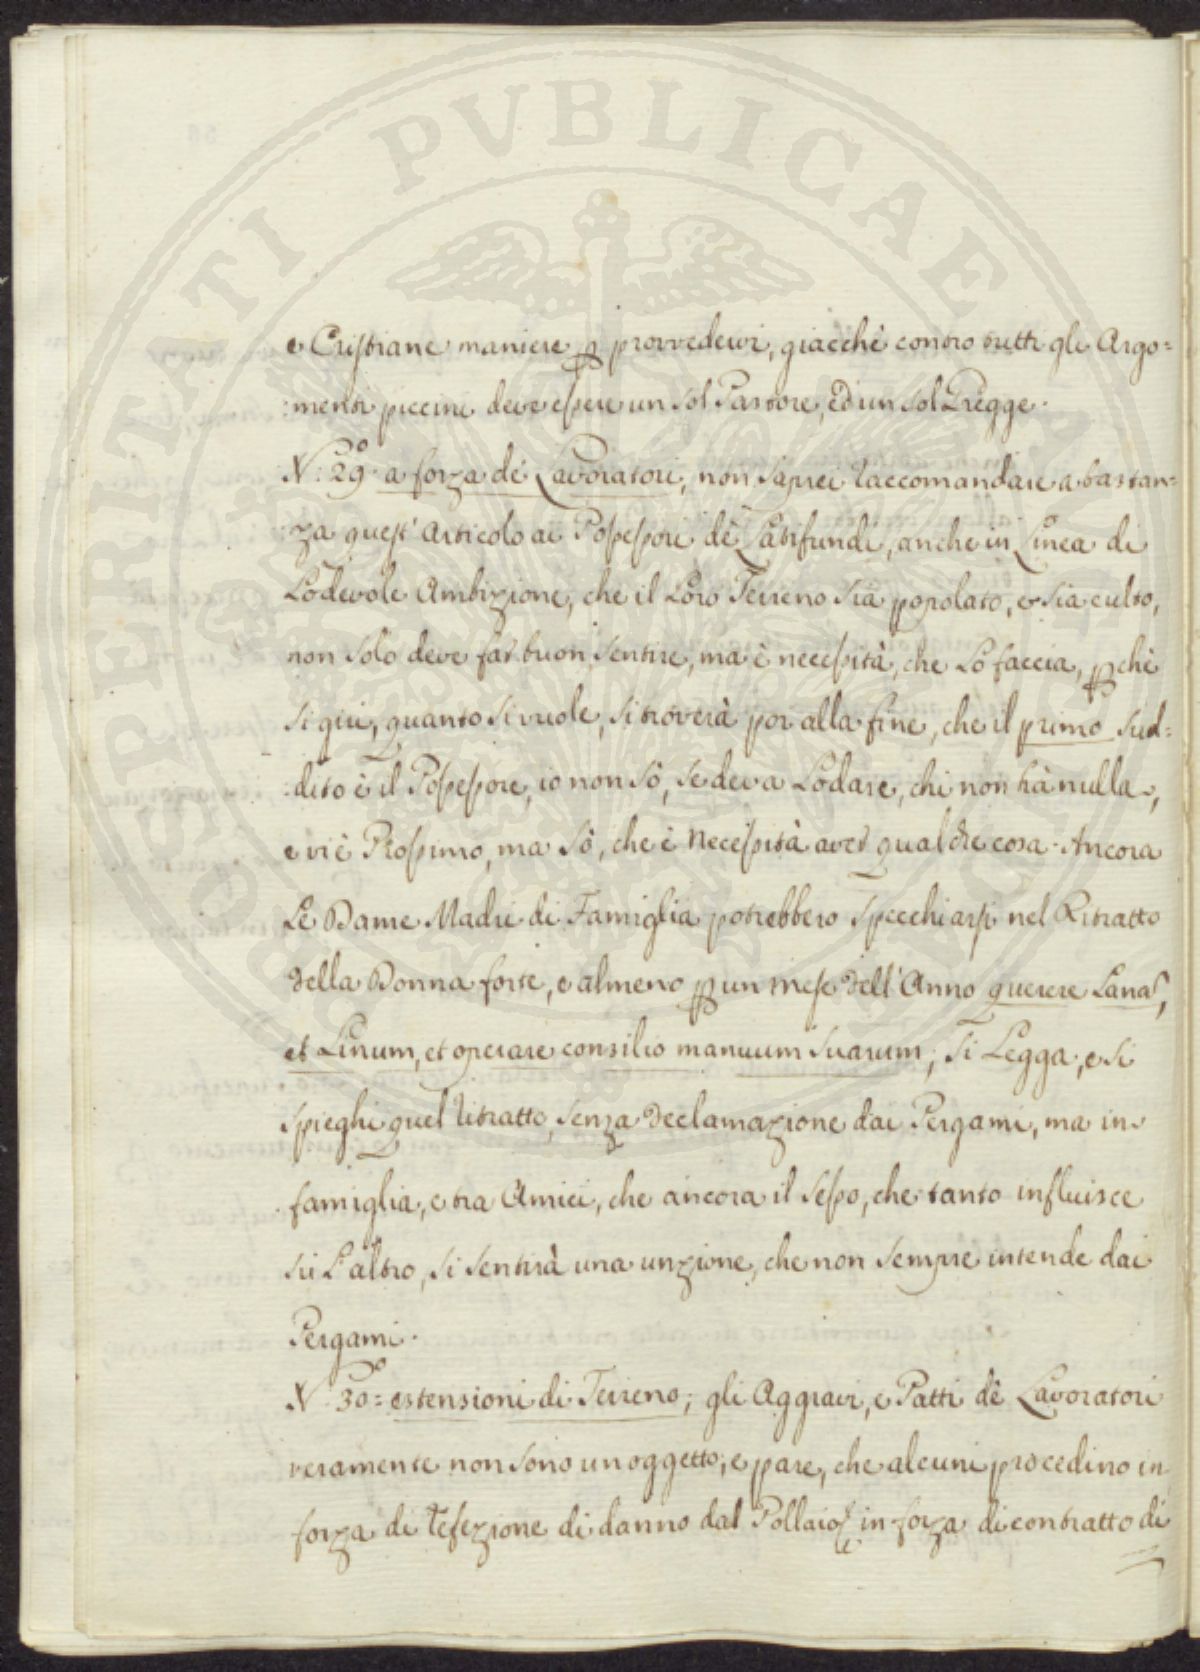 PROSPERITATI PVBLICAE AVGENDAE
e Cristiane maniere p provvedervi, giacchè contro tutti gli Argo=
:menti piccini deve essere un sol Pastore, ed un sol Gregge.
N.º 29. a forza dè Lavoratori, non saprei raccomandare a bastan=
za quest'Articolo ai Possessori dè Latifundi, anche in Linea di
Lodevole Ambizione, che il Loro Terreno sia popolato, e sia culto,
non solo deve far buon sentire, ma è necessità, che Lo faccia, pchè
si giri, quanto si vuole, si troverà poi alla fine, che il primo sud=
:dito è il Possessore, io non sò, se deva Lodare, chi non hà nulla,
e vi è Prossimo, ma sò, che è necessità aver qualche cosa. Ancora
Le Dame Madri di Famiglia potrebbero specchiarsi nel Ritratto
della Donna forte, e almeno p un mese dell'Anno querere Lanas,
et Linum, et operare consilio manuum suarum; si Legga, e si
spieghi quel ritratto, senza declamazione dai Pergami, ma in
famiglia, e tra Amici, che ancora il sesso, che tanto influisce
sù L'altro, si sentirà una unzione, che non sempre intende dai
Pergami.
N.º 30= estensioni di Terreno; gli Aggravi, e Patti dè Lavoratori
veramente non sono un oggetto, e pare, che alcuni procedino in
forza di refezione di danno dal in forza di contratto di